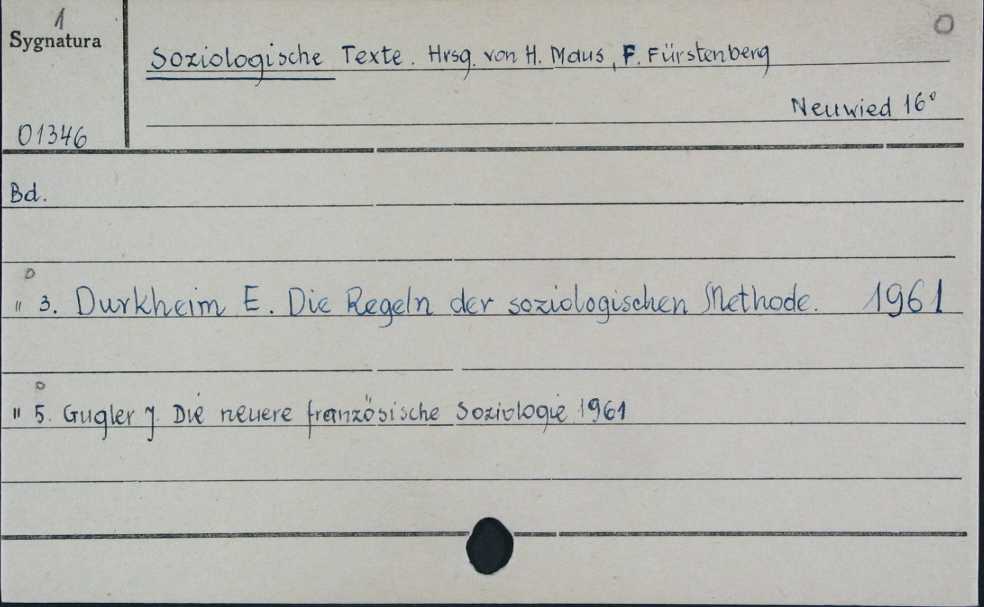 1
Sygnatura
0
Soziologische Texte. Hrsg. von H. Maus, F. Fürstenberg
Neuwied 16°
01346
Bd.
0
" 3. Durkheim E. Die Regeln der soziologischen Methode. 1961
0
" 5. Gugler J. Die neuere französische Soziologie 1961